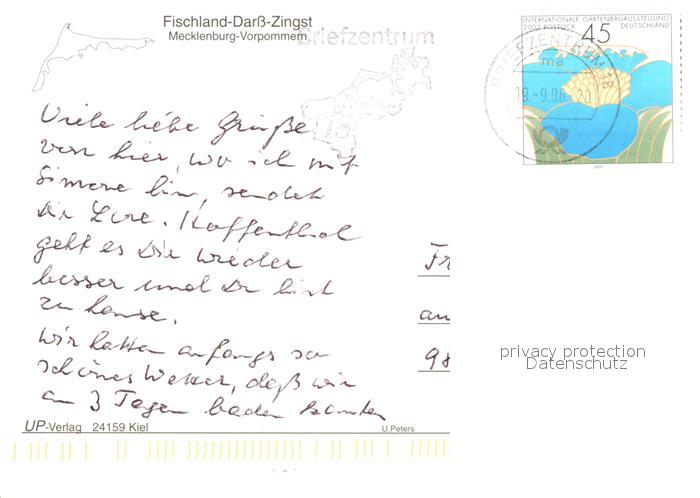 Fischland-Darß-Zingst
Mecklenburg-Vorpommern
Briefzentrum
18
INTERNATIONALE GARTENBAUAUSSTELLUNG
2003 ROSTOCK DEUTSCHLAND
45
BRIEFZENTRUM 18
ma
19.-9.06-20
2003
Viele liebe Grüße
von hier, wo ich mit
Simone bin, sendet
Dir Lore. Hoffentlich
geht es Dir wieder
besser und Du bist
zu hause.
Wir hatten anfangs so
schönes Wetter, daß wir
an 3 Tagen baden konnten
Fr
an
98
privacy protection
Datenschutz
UP-Verlag 24159 Kiel
U.Peters